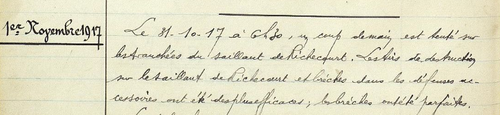 1er Novembre 1917
Le 31-10-17 à 6h30, un coup de main, est tenté sur
les tranchées du saillant de Richecourt. Les tirs de destruction
sur le saillant de Richecourt et brèches dans les défenses ac-
cessoires ont été des plus efficaces; les brèches ont été parfaites.